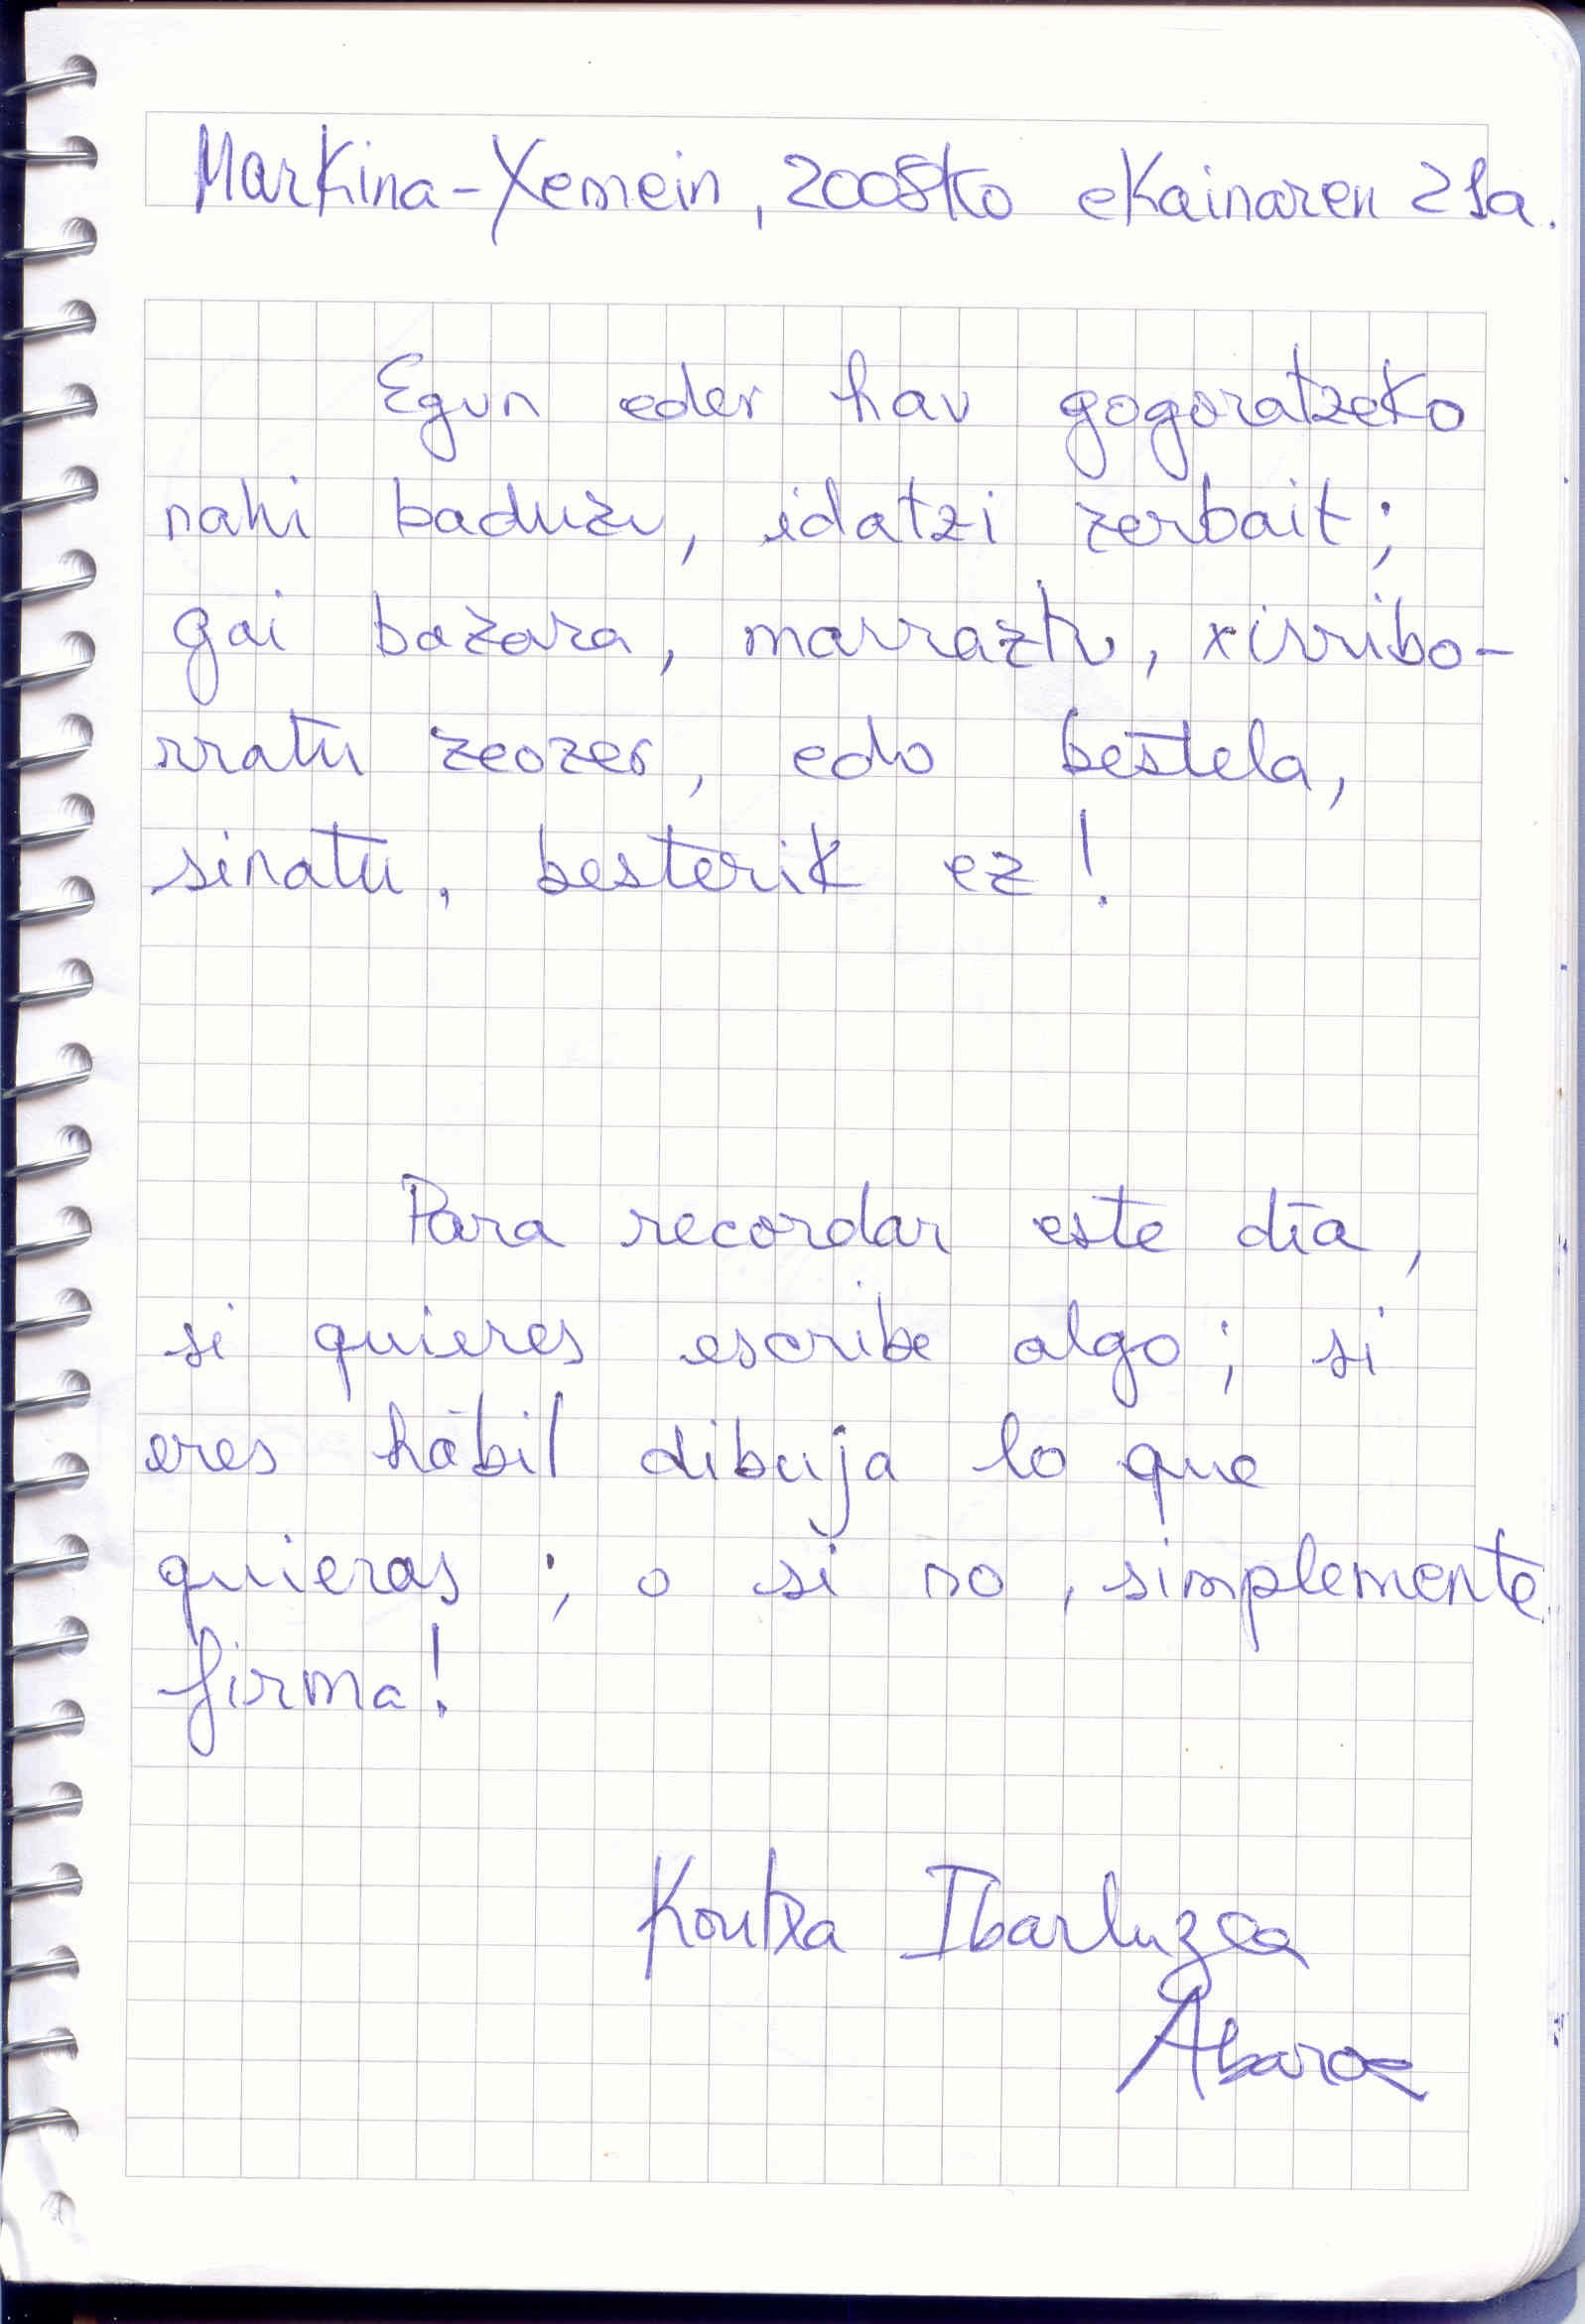 Markina-Xemein, 2008ko ekainaren 21a.
Egun eder hau gogoratzeko
nahi baduzu, idatzi zerbait;
gai bazara, marraztu, xirribo-
rratu zeozer, edo bestela,
sinatu, besterik ez!
Para recordar este día,
si quieres escribe algo; si
eres hábil dibuja lo que
quieras; o si no, simplemente
firma!
Kontxa Ibarluzea
Abaroa